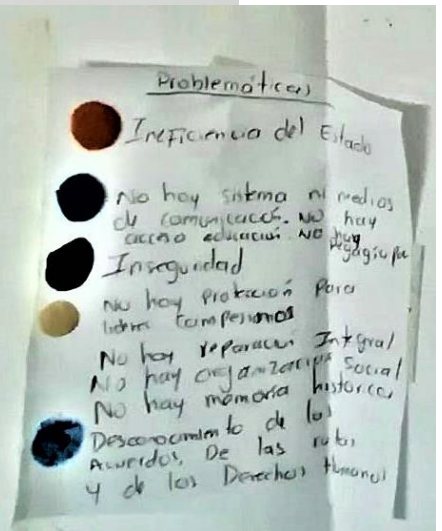 Problemáticas
Ineficiencia del Estado
No hay sistema ni medios
de comunicación. No hay
acceso educación. No hay
Inseguridad
No hay protección para
lideres campesinos
No hay reparación Integral
No hay organización social
No hay memoria historica
Desconocimiento de los
Acuerdos, De las rutas
y de los Derechos Humanos